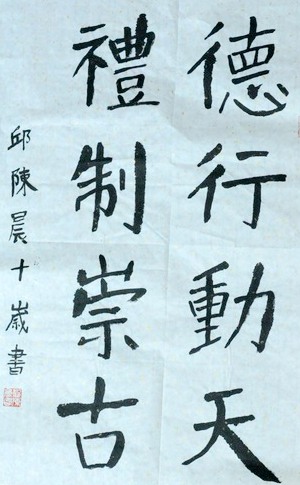 德行動天
禮制崇古
邱陳晨十歲書